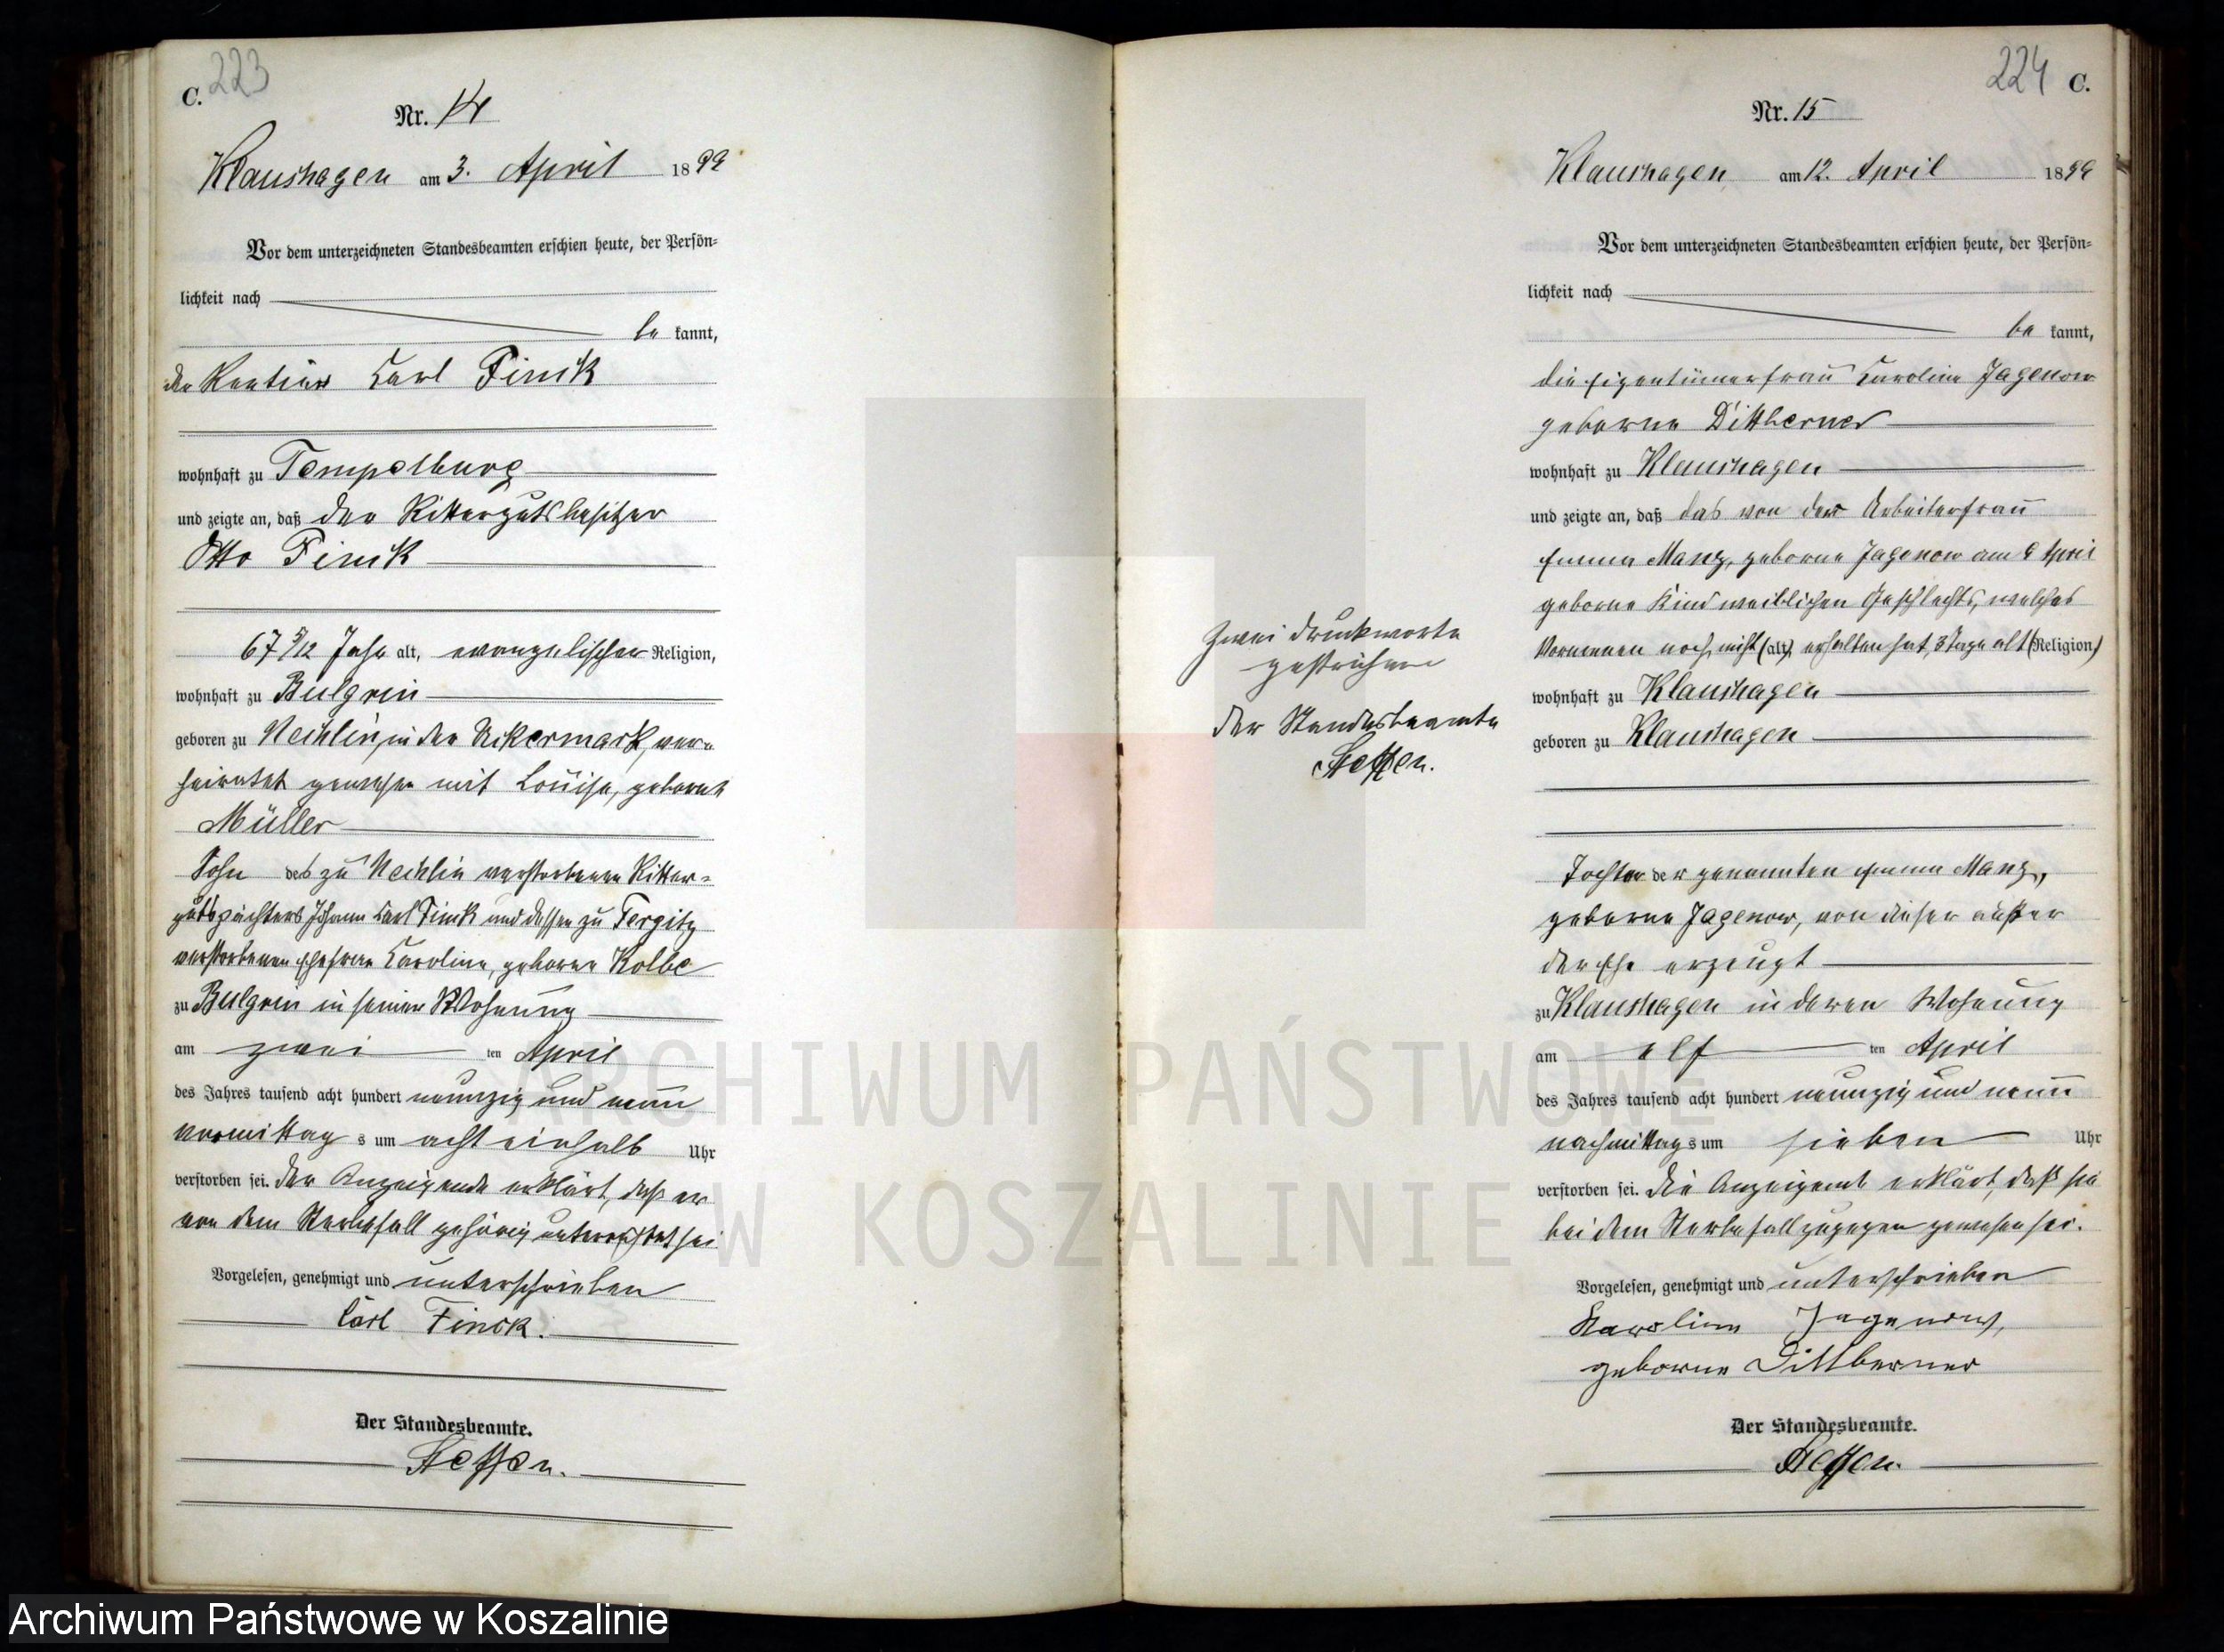 C. 223
Nr. 14
Klaushagen am 3. April 1899
Vor dem unterzeichneten Standesbeamten erschien heute, der Persön-
lichkeit nach
be kannt,
der Rentier Carl Finck
wohnhaft zu Tempelburg
und zeigte an, daß der Rittergutsbesitzer
Otto Finck
67 5/12 Jahr alt, evangelischer Religion,
wohnhaft zu Bulgrin
geboren zu Nechlin, in der Uckermark, ver-
heiratet gewesen mit Louise, geborene
Müller
Sohn des zu Nechlin verstorbenen Ritter-
gutspächters Johann Carl Finck und dessen zu
verstorbenen Ehefrau Caroline, geborne Kolbe
zu Bulgrin in seiner Wohnung
am zwei ten April
des Jahres tausend acht hundert neunzig und neun
vormittag s um acht einhalb Uhr
verstorben sei. Der Anzeigende erklärt, daß er
von dem Sterbefall gehörig unterrichtet sei
Vorgelesen, genehmigt und unterschrieben
Carl Finck.
Der Standesbeamte.
Steffen.
224 C.
Nr. 15
Klaushagen am 12. April 1899
Vor dem unterzeichneten Standesbeamten erschien heute, der Persön-
lichkeit nach
be kannt,
die Eigentümerfrau Caroline Jagenow
geborne Dittberner
wohnhaft zu Klaushagen
und zeigte an, daß das von der Arbeiterfrau
Emma Manz, geborne Jagenow am 9 April
geborne Kind weiblichen Geschlechts, welches
Vornamen noch nicht (alt,) erhalten hat, 3 Tage alt (Religion,)
wohnhaft zu Klaushagen
geboren zu Klaushagen
Tochter der genannten Emma Manz,
geborne Jagenow, von dieser außer
der Ehe erzeugt
zu Klaushagen in deren Wohnung
am elf ten April
des Jahres tausend acht hundert neunzig und neun
nachmittag s um sieben Uhr
verstorben sei. Die Anzeigende erklärt, daß sie
bei dem Sterbefall zugegen gewesen sei.
Vorgelesen, genehmigt und unterschrieben
Karoline Jagenow,
geborne Dittberner
Der Standesbeamte.
Steffen.
Zwei Druckworte
gestrichen
Der Standesbeamte
Steffen.
ARCHIWUM PAŃSTWOWE
W KOSZALINIE
Archiwum Państwowe w Koszalinie